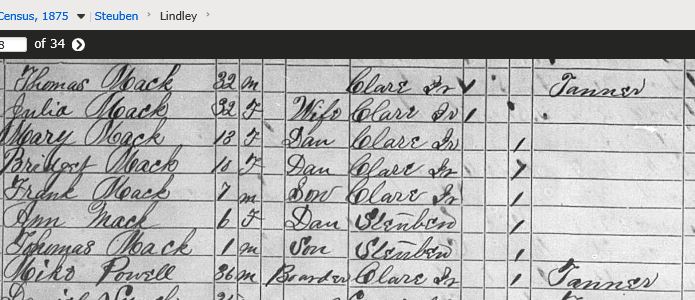 Census, 1875 Steuben Lindley
8 of 34
Thomas Mack 32 m Clare Ir 1 Tanner
Julia Mack 32 F Wife Clare Ir 1
Mary Mack 13 F Dau Clare Ir 1
Bridget Mack 10 F Dau Clare Ir 1
Frank Mack 7 m Son Clare Ir 1
Ann Mack 6 F Dau Steuben 1
Thomas Mack 1 m Son Steuben 1
Mike Powell 36 m Boarder Clare Ir 1 Tanner